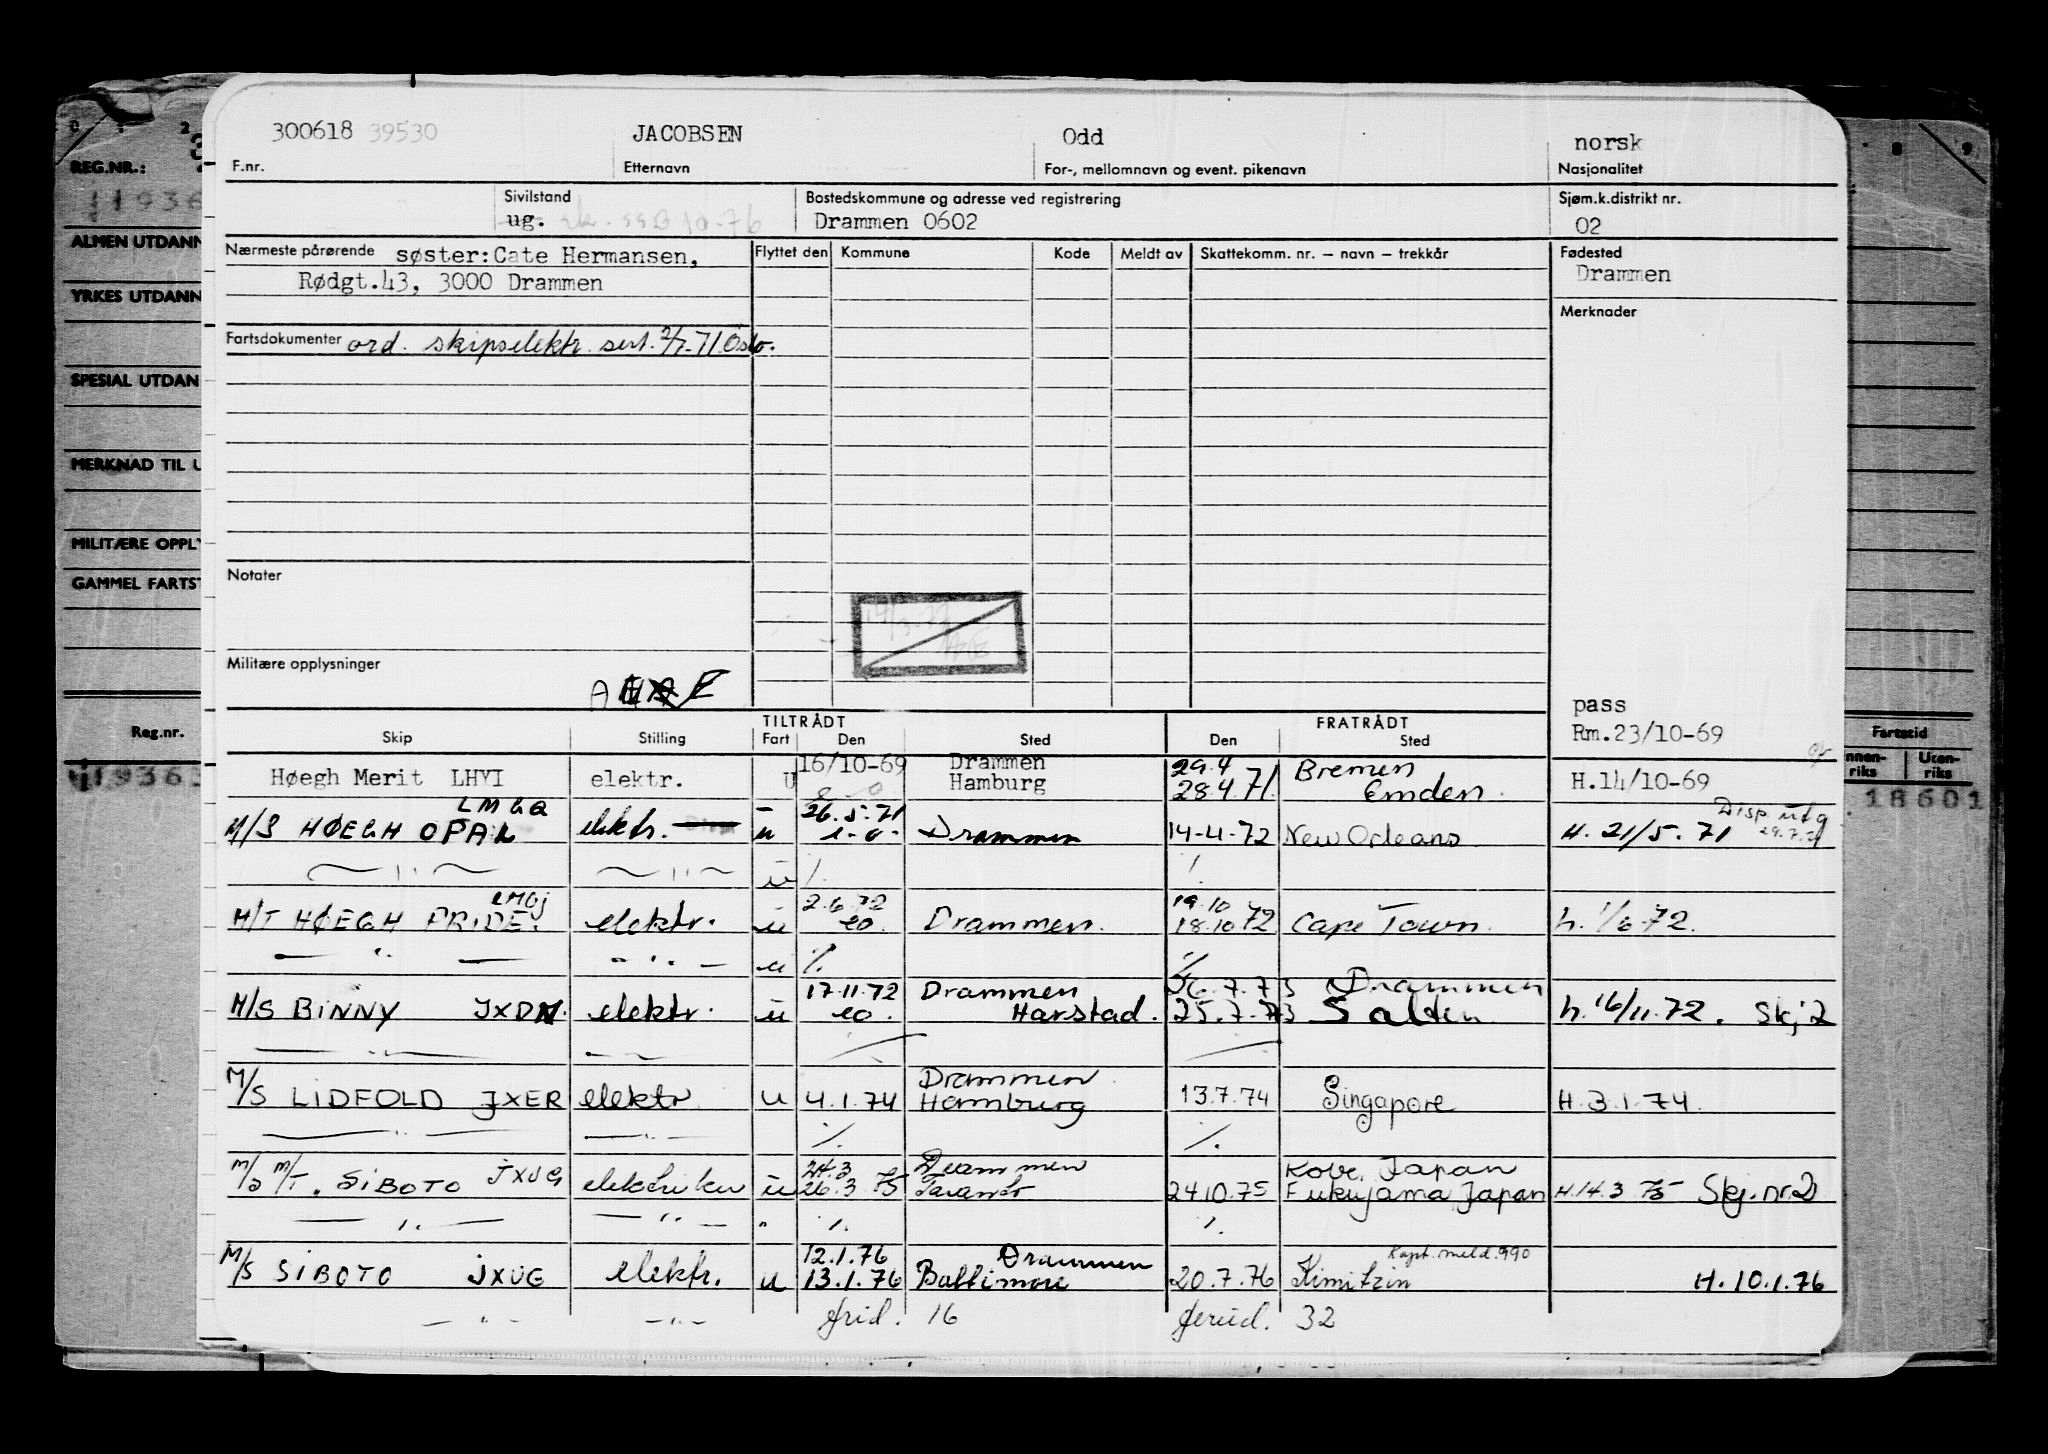 300618 39530 JACOBSEN Odd norsk
F.nr. Etternavn For-, mellomnavn og event. pikenavn Nasjonalitet
REG.NR.:
Sivilstand Bostedskommune og adresse ved registrering Sjøm.k.distrikt nr.
ug. 10-76 Drammen 0602 02
ALMEN UTDANN
Nærmeste pårørende søster: Cate Hermansen, Flyttet den Kommune Kode Meldt av Skattekomm. nr. – navn – trekkår Fødested
Rødgt.43, 3000 Drammen Drammen
YRKES UTDANN
Merknader
Fartsdokumenter ord. skipselektr. sert. 2/7-71 Oslo.
SPESIAL UTDAN
MERKNAD TIL U
MILITÆRE OPPLY
Notater
GAMMEL FARTST
Militære opplysninger
pass
TILTRÅDT FRATRÅDT
Reg.nr. Skip Stilling Fart Den Sted Den Sted Rm.23/10-69 Fartstid
nnen-riks Uten-riks
16/10-69 Drammen 29.4 Bremen
Høegh Merit LHVI elektr. U Hamburg 28.4.71. Emden. H.14/10-69
19363 18601
LMGQ 26.5.71 Disp. utg
M/S HØEGH OPAL elektr. u e.o. Drammen 14-4-72 New Orleans H. 21/5.71 29.7.71
— " — — " — u %. %.
LMGJ 2.6.72 19.10
M/T HØEGH PRIDE. elektr. u eo. Drammen. 18.10 72 Cape Town. h. 1/6 72.
— " — — " — u %. %
17.11.72 Drammen 26.7.73 Drammen
M/S BINNY JXDN. elektr. u eo. Harstad. 25.7.73 h. 16/11.72. Skj 2
— " — — " —
Drammen
M/S LIDFOLD JXER elektr u 4.1.74 Hamburg 13.7.74 Singapore H.3.1.74.
— " — — " — %. %.
24.3 Drammen Kobe, Japan
M/S M/T. SIBOTO JXUG elektriker u 26.3 75 Taranto 24.10.75 Fukujama Japan H.14.3 75 Skj.nr.2
— " — — " — " %. %.
12.1.76 Drammen Rapt. meld. 990
M/S SIBOTO JXUG elektr. u 13.1.76 Baltimore 20.7.76 Kimitzin H. 10.1.76
— " — — " — frid. 16 feried. 32